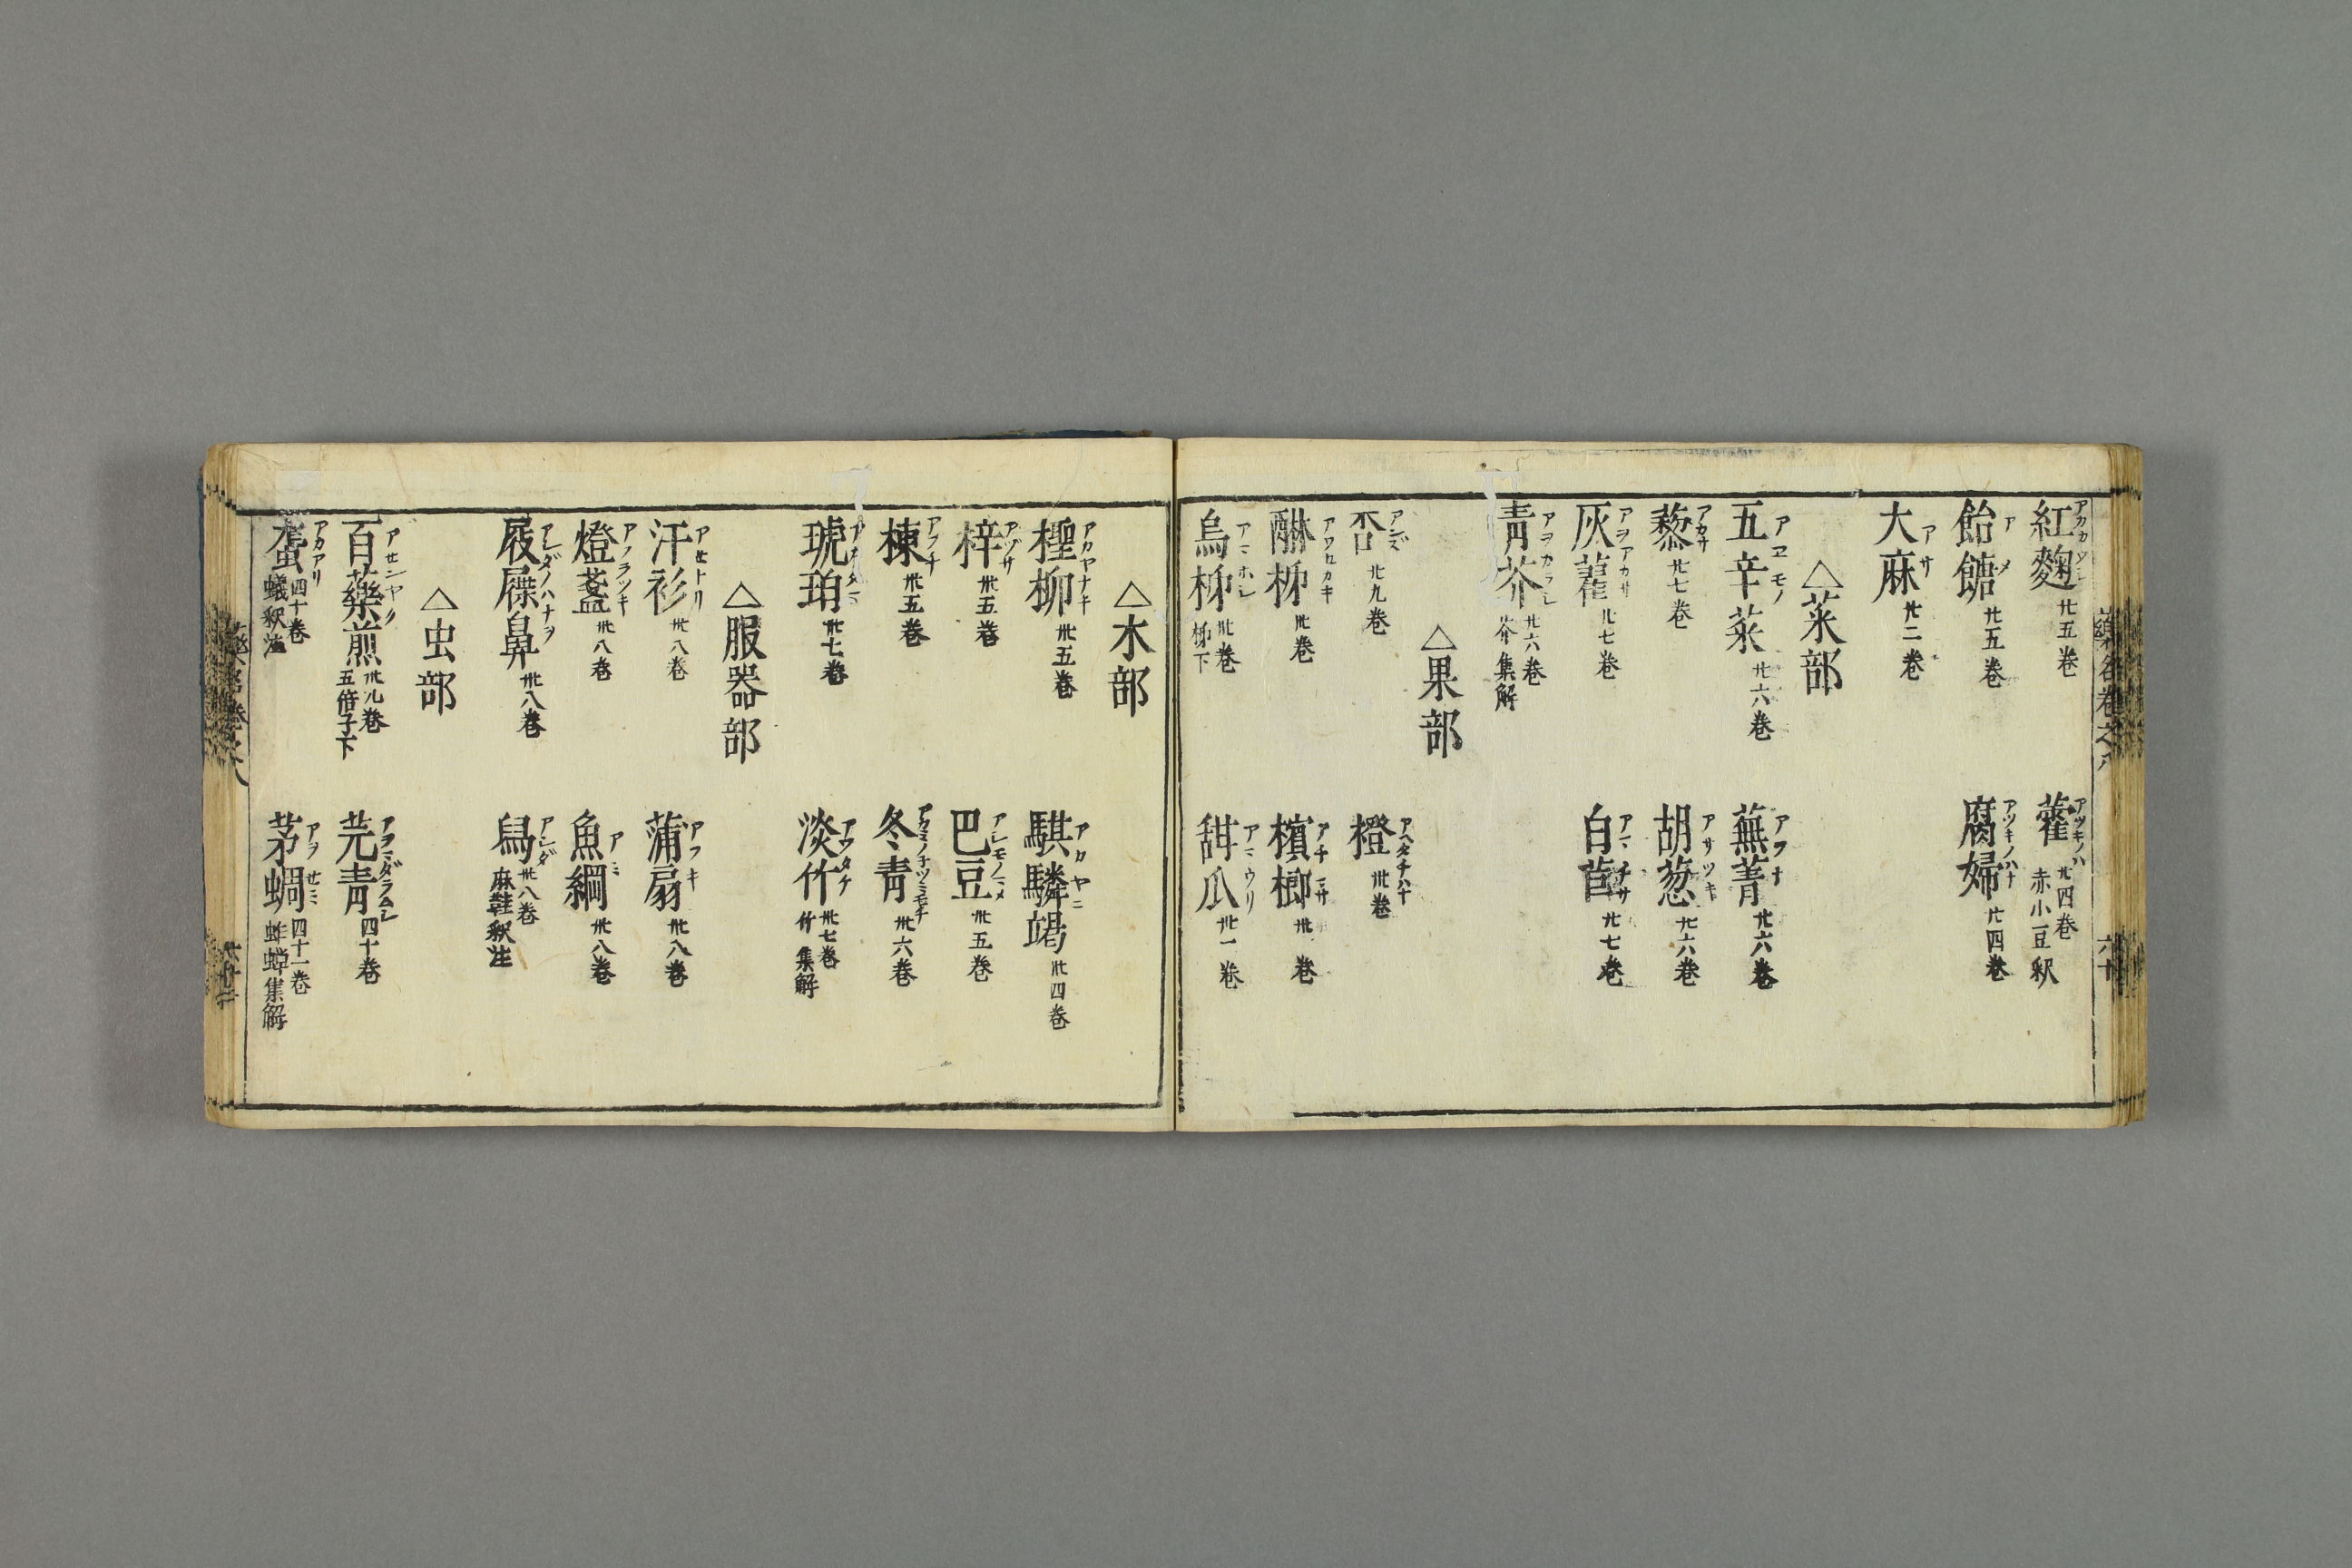 紅麹 アカカウジ 廿五巻
藿 アヅキノハ 廿四巻 赤小豆釈
飴餹 アメ 廿五巻
腐婢 アツキノハナ 廿四巻
大麻 アサ 廿二巻
△菜部
五辛菜 アヱモノ 廿六巻
蕪菁 アヲナ 廿六巻
藜 アカサ 廿七巻
胡葱 アサツキ 廿六巻
灰藋 アヲアカサ 廿七巻
白苣 アマチサ 廿七巻
青芥 アヲカラシ 廿六巻 芥集解
△果部
杏 アンズ 廿九巻
橙 アヘタチハナ 卅巻
醂柹 アワロカキ 卅巻
檳榔 卅一巻
烏柹 アマホシ 卅巻 柹下
甜瓜 アマウリ 卅一巻
△木部
檉柳 アカヤナキ 卅五巻
騏驎竭 アカヤニ 卅四巻
梓 アヅサ 卅五巻
巴豆 卅五巻
楝 アフチ 卅五巻
冬青 アカミノチツミモチ 卅六巻
琥珀 卅七巻
淡竹 アワタケ 卅七巻 竹集解
△服器部
汗衫 アセトリ 卅八巻
蒲扇 アフキ 卅八巻
燈盞 アフラツキ 卅八巻
魚網 アミ 卅八巻
屐屧鼻 アシダノハナヲ 卅八巻
舄 アシダ 卅八巻 麻鞋釈注
△虫部
百藥煎 アセンヤク 卅九巻 五倍子下
芫青 アヲマダラムシ 四十巻
蠪 アカアリ 四十巻 蟻釈注
茅蜩 アヲセミ 四十一巻 蚱蟬集解